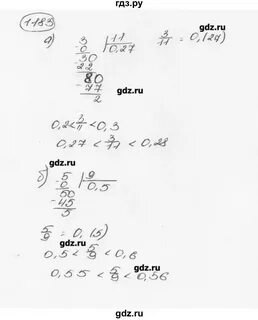 гдз.ру
1183
а) 3 | 11
0 | 0,27
30
22
80
77
2
3/11 = 0,(27)
0,2 < 3/11 < 0,3
0,27 < 3/11 < 0,28
б) 5 | 9
0 | 0,5
50
45
5
5/9 = 0,(5)
0,5 < 5/9 < 0,6
0,55 < 5/9 < 0,56
gdz.ru